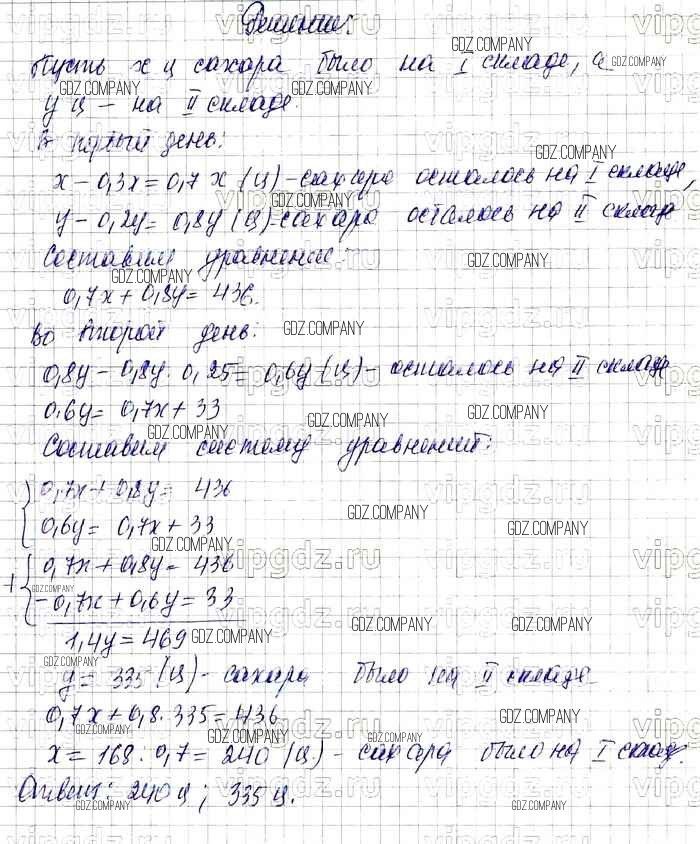 Решение:
Пусть х ц сахара было на I складе, а
у ц – на II складе.
В первый день:
х – 0,3х = 0,7 х (ц) – сахара осталось на I складе,
у – 0,2у = 0,8у (ц) – сахара осталось на II складе
Составим уравнение:
0,7х + 0,8у = 436.
Во второй день:
0,8у – 0,8у · 0,25 = 0,6у (ц) – осталось на II складе
0,6у = 0,7х + 33
Составим систему уравнений:
0,7х + 0,8у = 436
0,6у = 0,7х + 33
+ 0,7х + 0,8у = 436
–0,7х + 0,6у = 33
1,4у = 469
у = 335 (ц) – сахара было на II складе
0,7х + 0,8 · 335 = 436
х = 168 : 0,7 = 240 (ц) – сахара было на I складе.
Ответ: 240 ц ; 335 ц.
GDZ.COMPANY
vipgdz.ru